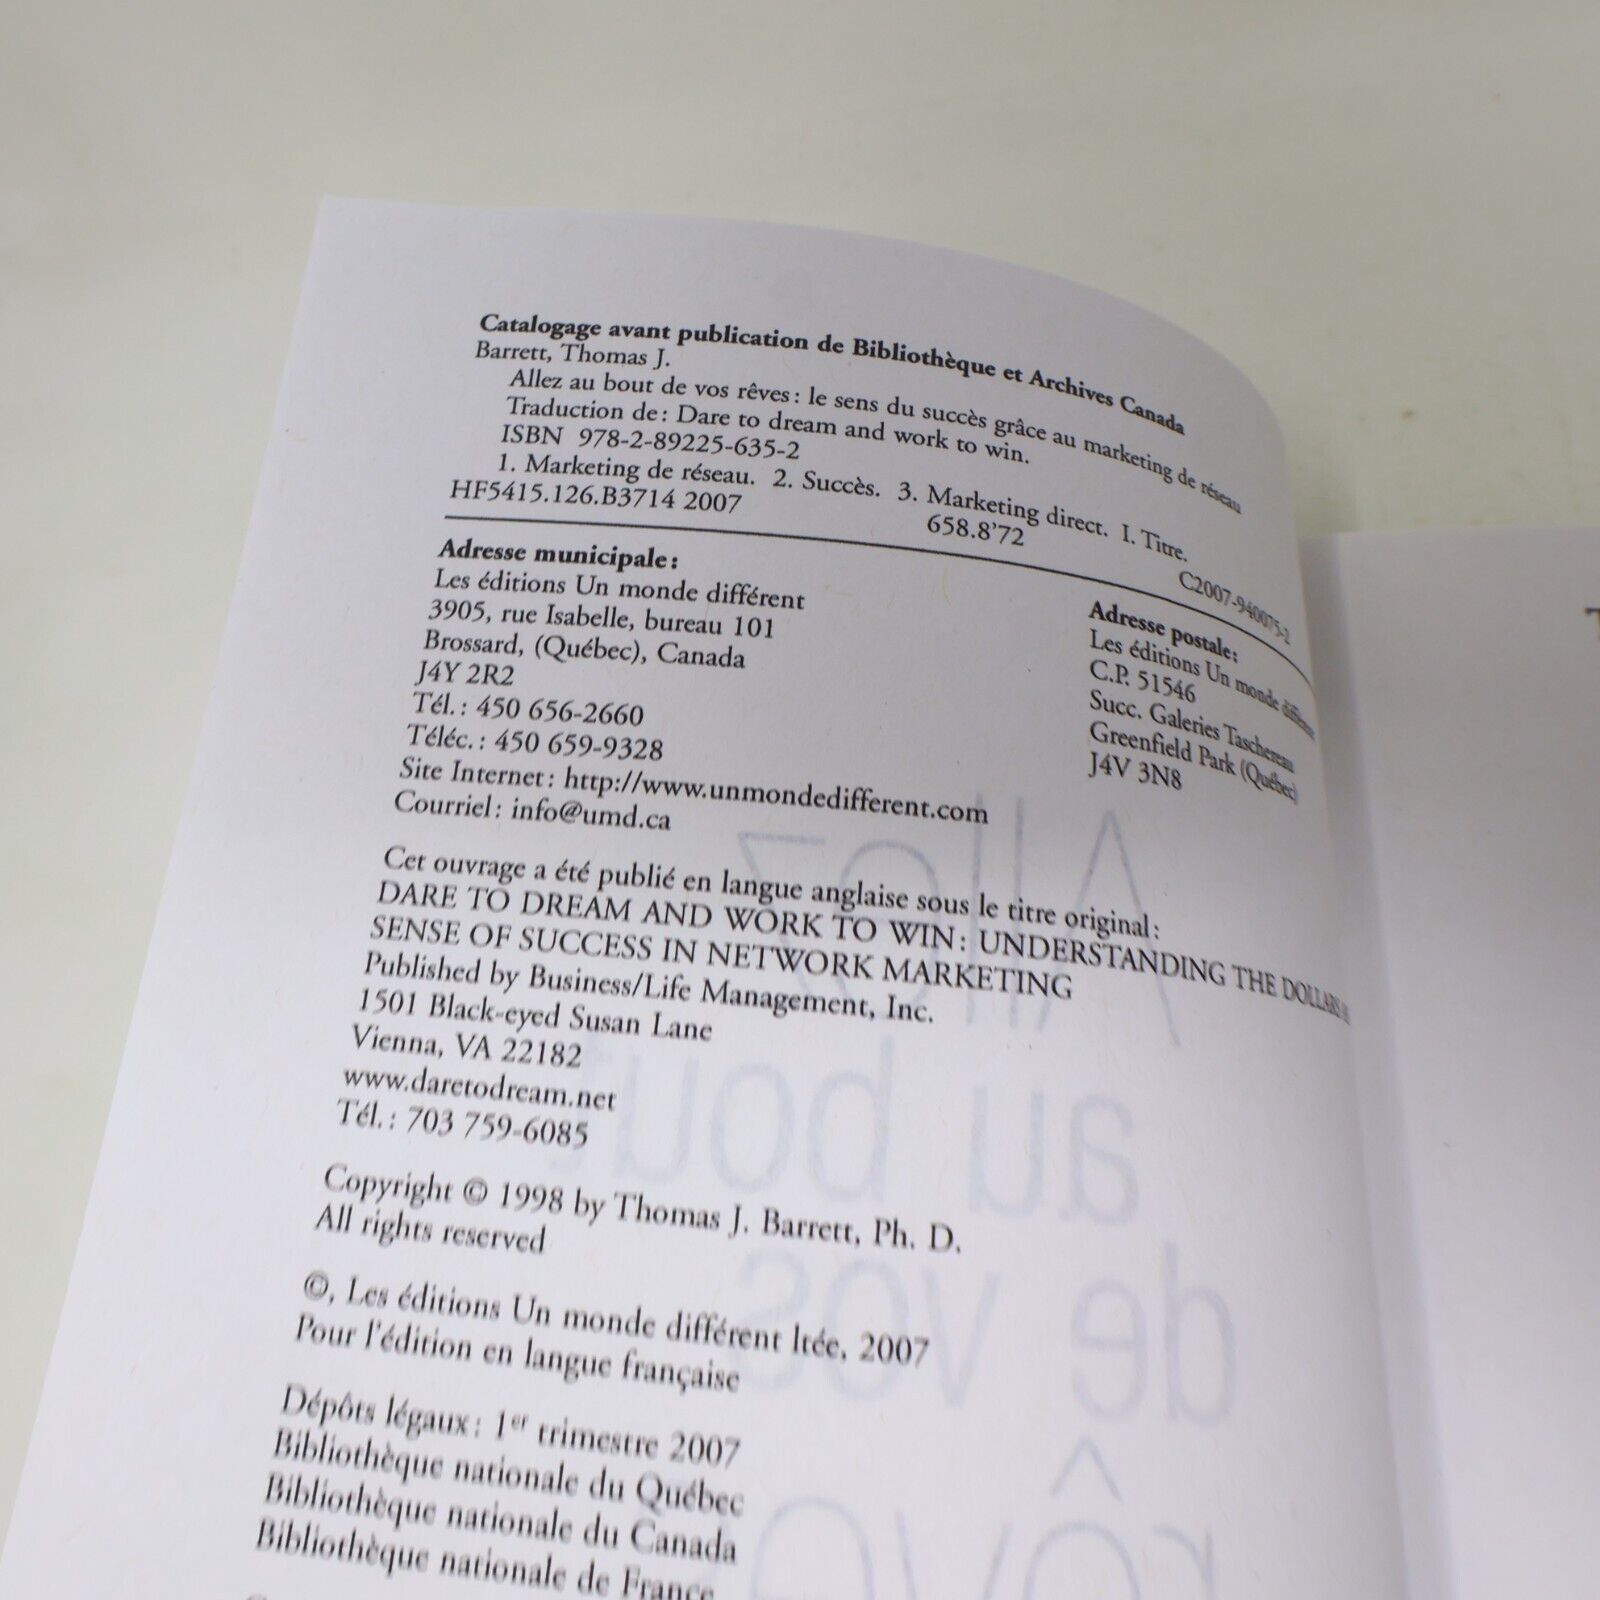 Catalogage avant publication de Bibliothèque et Archives Canada
Barrett, Thomas J.
Allez au bout de vos rêves : le sens du succès grâce au marketing de réseau
Traduction de : Dare to dream and work to win.
ISBN 978-2-89225-635-2
1. Marketing de réseau. 2. Succès. 3. Marketing direct. I. Titre.
HF5415.126.B3714 2007 658.8'72 C2007-940075-2
Adresse municipale :
Les éditions Un monde différent
3905, rue Isabelle, bureau 101
Brossard, (Québec), Canada
J4Y 2R2
Tél. : 450 656-2660
Téléc. : 450 659-9328
Site Internet : http://www.unmondedifferent.com
Courriel : info@umd.ca
Adresse postale :
Les éditions Un monde différent
C.P. 51546
Succ. Galeries Taschereau
Greenfield Park (Québec)
J4V 3N8
Cet ouvrage a été publié en langue anglaise sous le titre original :
DARE TO DREAM AND WORK TO WIN : UNDERSTANDING THE DOLLARS
SENSE OF SUCCESS IN NETWORK MARKETING
Published by Business/Life Management, Inc.
1501 Black-eyed Susan Lane
Vienna, VA 22182
www.daretodream.net
Tél. : 703 759-6085
Copyright © 1998 by Thomas J. Barrett, Ph. D.
All rights reserved
©, Les éditions Un monde différent ltée, 2007
Pour l'édition en langue française
Dépôts légaux : 1er trimestre 2007
Bibliothèque nationale du Québec
Bibliothèque nationale du Canada
Bibliothèque nationale de France
Allez
au bout
de vos